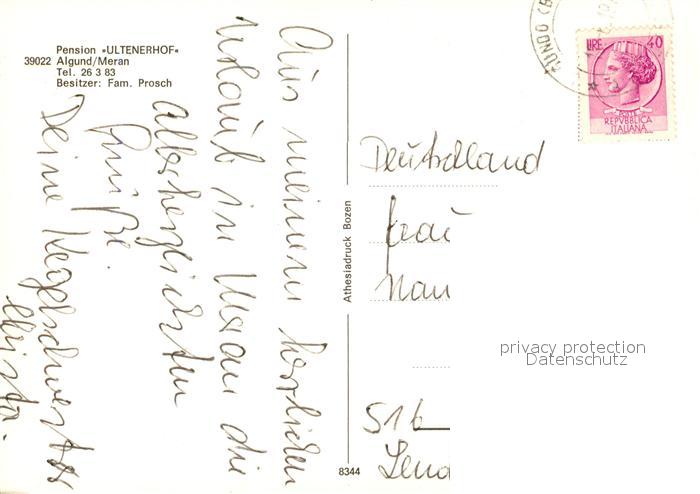 Pension »ULTENERHOF«
39022 Algund/Meran
Tel. 26 3 83
Besitzer: Fam. Prosch
Aus meinem herrlichen
Urlaub in Meran die
allerherzlichsten
Grüße.
Deine Kegelschwester
Christa.
Athesiadruck Bozen
8344
LIRE 40
POSTE
REPVBBLICA
ITALIANA
Deutschland
Frau
516
privacy protection
Datenschutz